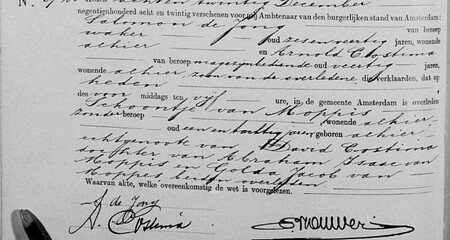 achten twintig December
negentienhonderd acht en twintig verschenen voor mij Ambtenaar van den burgerlijken stand van Amsterdam:
Salomon de Jong van beroep
waker oud zes en veertig jaren, wonende
alhier en Arnold Costima
van beroep magazijnbediende oud veertig jaren,
wonende alhier zoon van de overledene die verklaarden, dat op
heden
des voor middags ten vijf ure, in de gemeente Amsterdam is overleden
Schoontje van Moppis
zonder beroep wonende alhier,
oud een en tachtig jaren geboren alhier,
echtgenoote van David Costima
dochter van Abraham Isaac van
Moppis en Golda Jacob van
Moppes, beiden overleden.
Waarvan akte, welke overeenkomstig de wet is voorgelezen.
S de Jong
A. Costima